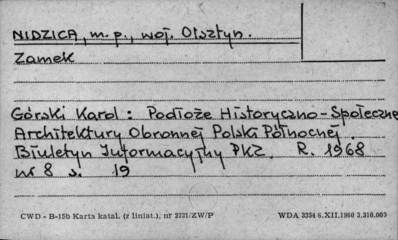 NIDZICA, m.p., woj. Olsztyn.
Zamek
Górski Karol : Podłoże Historyczno-Społeczne
Architektury Obronnej Polski Północnej.
Biuletyn Informacyjny PKZ. R. 1968
nr 8 s. 19
CWD - B-15b Karta katal. (z liniat.), nr 2731/ZW/P WDA 3354 6.XII.1960 3.310.000